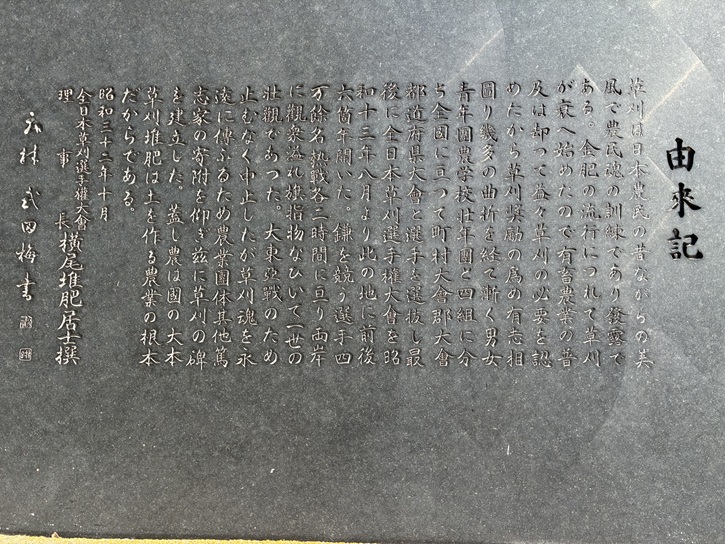 由來記
草刈は日本農民の昔ながらの美
風で農民魂の訓練であり發靈で
ある。金肥の流行につれて草刈
が衰へ始めたので有畜農業の普
及は却って益々草刈の必要を認
めたから草刈奨励の為め有志相
圖り幾多の曲折を経て漸く男女
青年團農学校壮年團と四組に分
ち全國に亘つて町村大會郡大會
都道府県大會と選手を選抜し最
後に全日本草刈選手権大會を昭
和十三年八月より此の地に前後
六箇年開いた。鎌を競う選手四
万餘名熱戦各三時間に亘り両岸
に觀衆溢れ旗指物なびいて一世の
壮觀であつた。大東亞戦のため
止むなく中止したが草刈魂を永
遠に傳ふるため農業團体其他篤
志家の寄附を仰ぎ茲に草刈の碑
を建立した。蓋し農は國の大本
草刈堆肥は土を作る農業の根本
だからである。
昭和三十二年十月
全日本草刈選手權大會
理事長 横尾堆肥居士撰
武田梅書